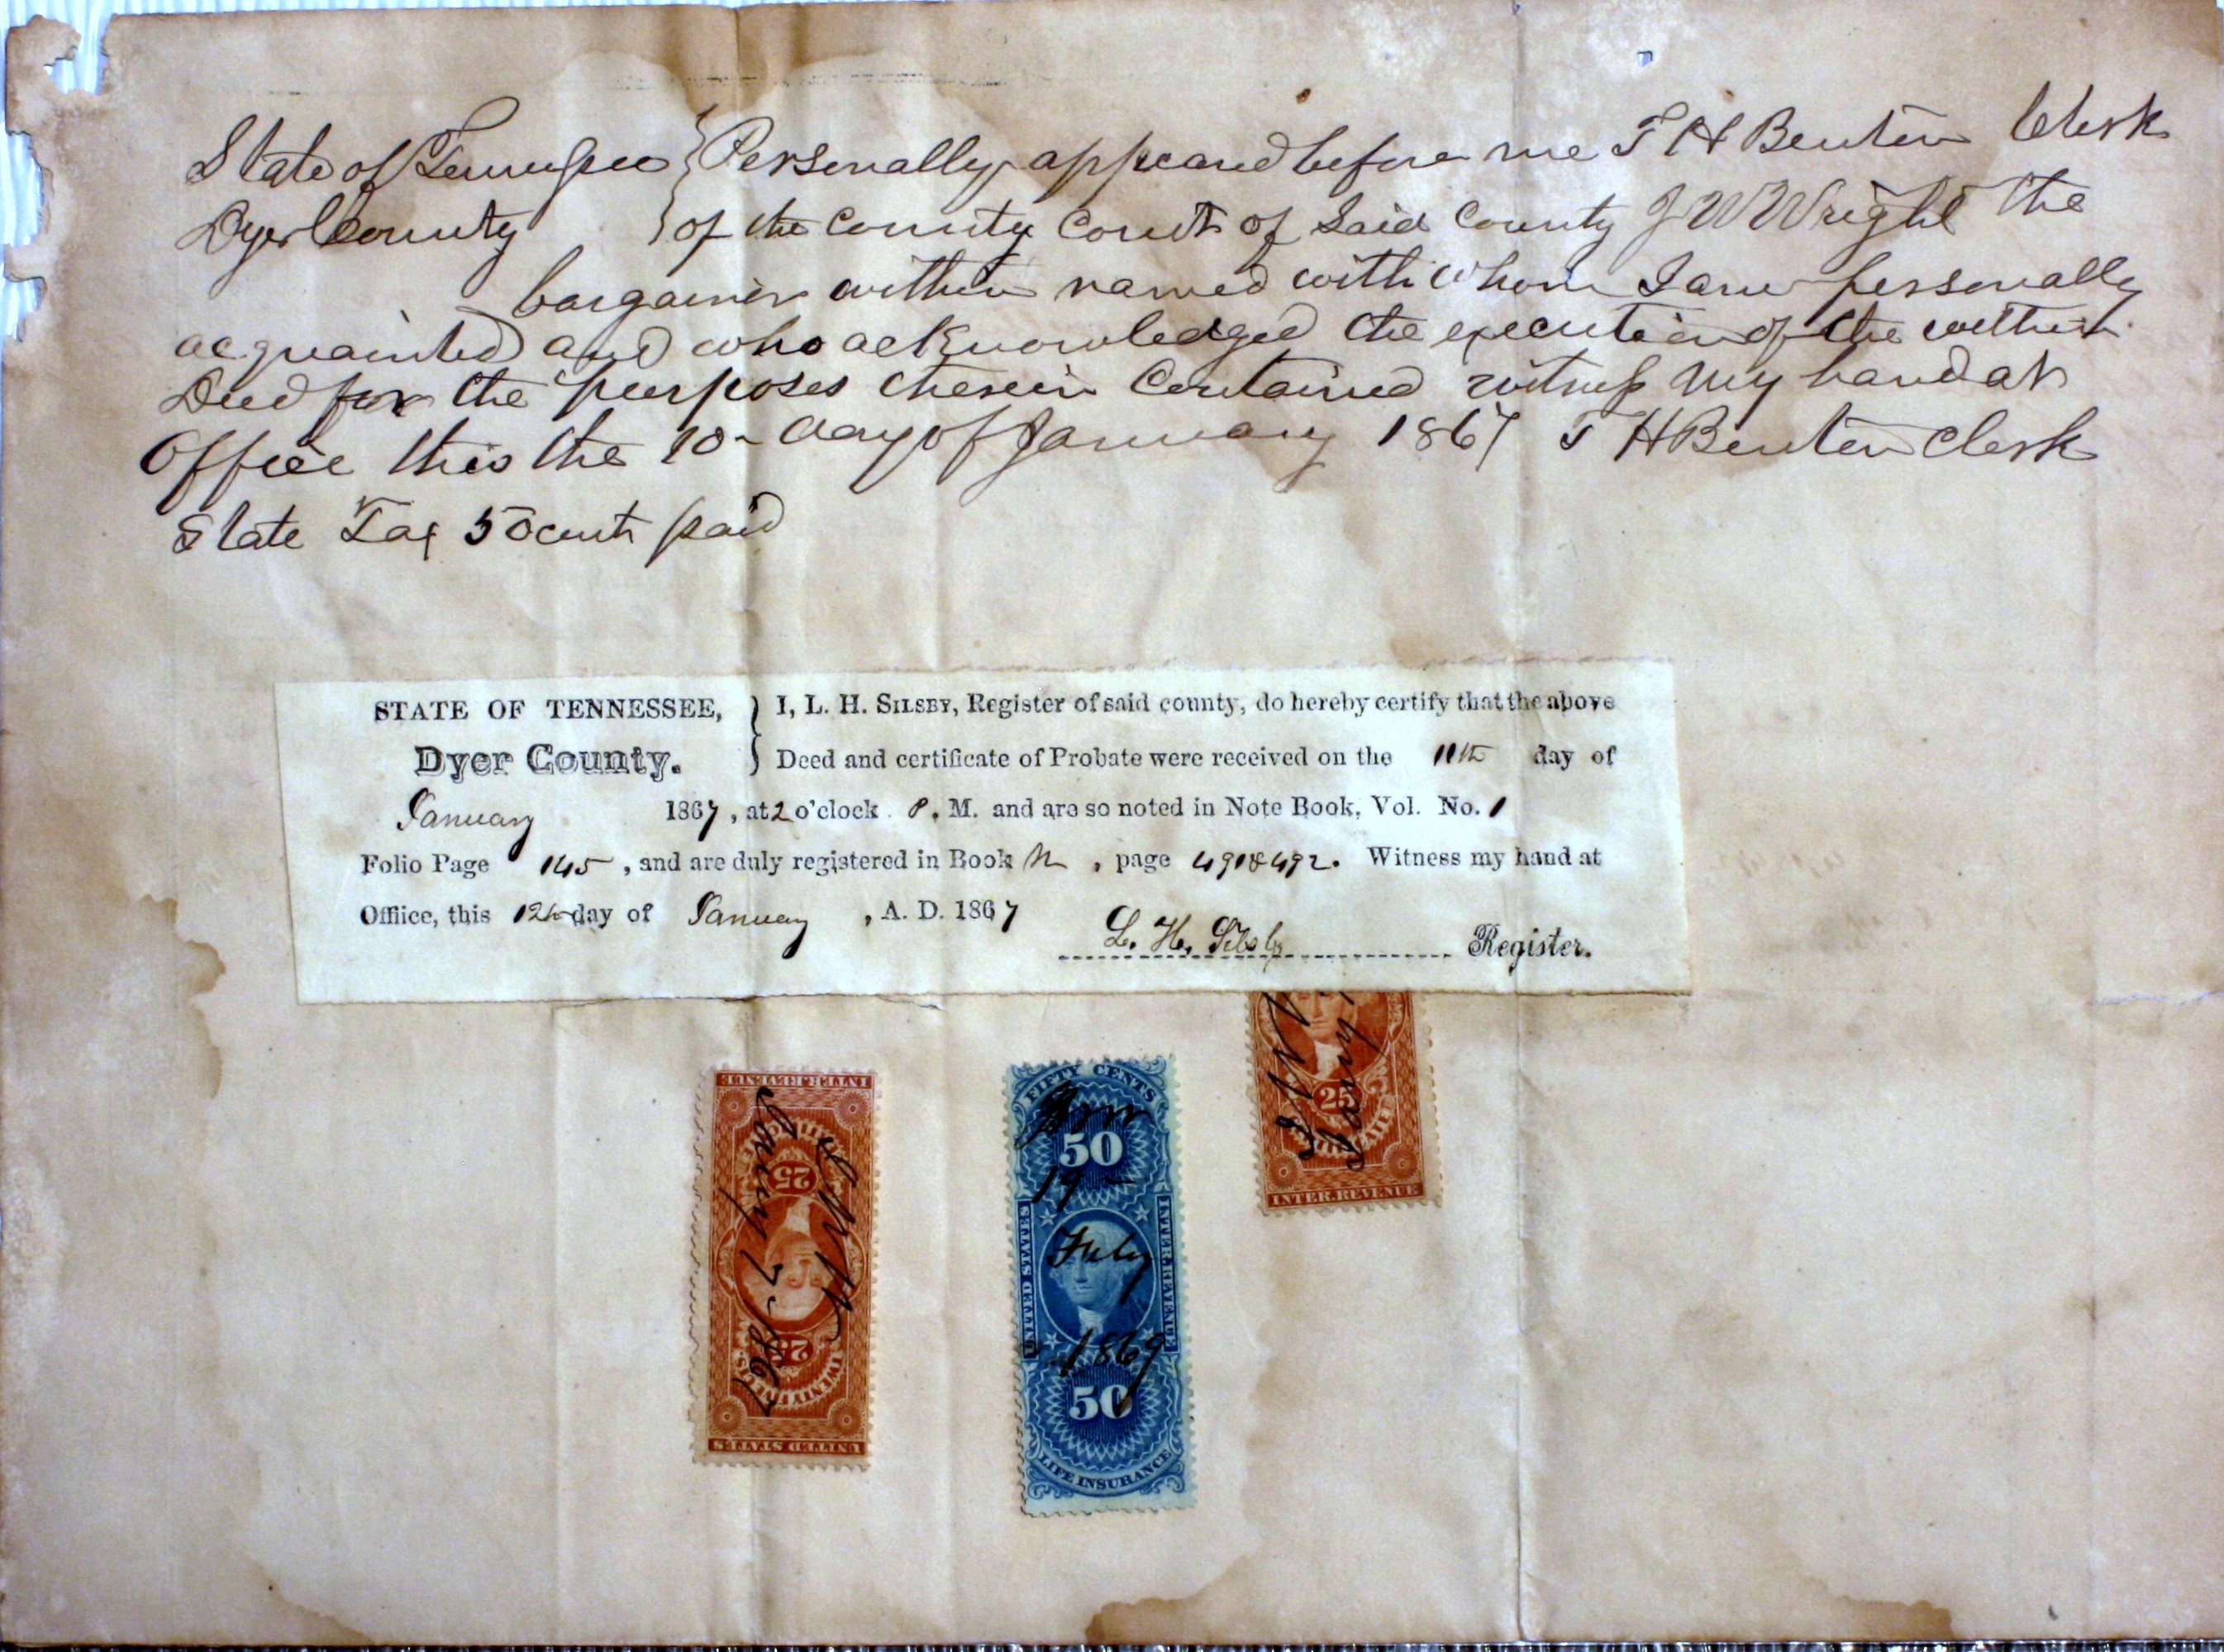 State of Tennessee } Personally appeared before me T H Benton Clerk
Dyer County } of the County Court of Said County J W Wright the
bargainer within named with whom I am personally
acquainted and who acknowledged the execution of the within
Deed for the purposes therein Contained witness My hand at
Office this the 10 day of January 1867 T H Benton Clerk
State Tax 50 cents paid
STATE OF TENNESSEE, } I, L. H. SILSBY, Register of said county, do hereby certify that the above
Dyer County. } Deed and certificate of Probate were received on the 11th day of
January 1867, at 2 o'clock P. M. and are so noted in Note Book, Vol. No. 1
Folio Page 145, and are duly registered in Book , page 491 & 492. Witness my hand at
Offiice, this 12th day of January, A. D. 1867
L. H. Silsby Register.
25
INTER. REVENUE
UNITED STATES
INTER. REVENUE
25
TWENTY FIVE
25
Jany 7 1867
FIFTY CENTS
50
19
UNITED STATES
July
INTER. REVENUE
1869
50
LIFE INSURANCE